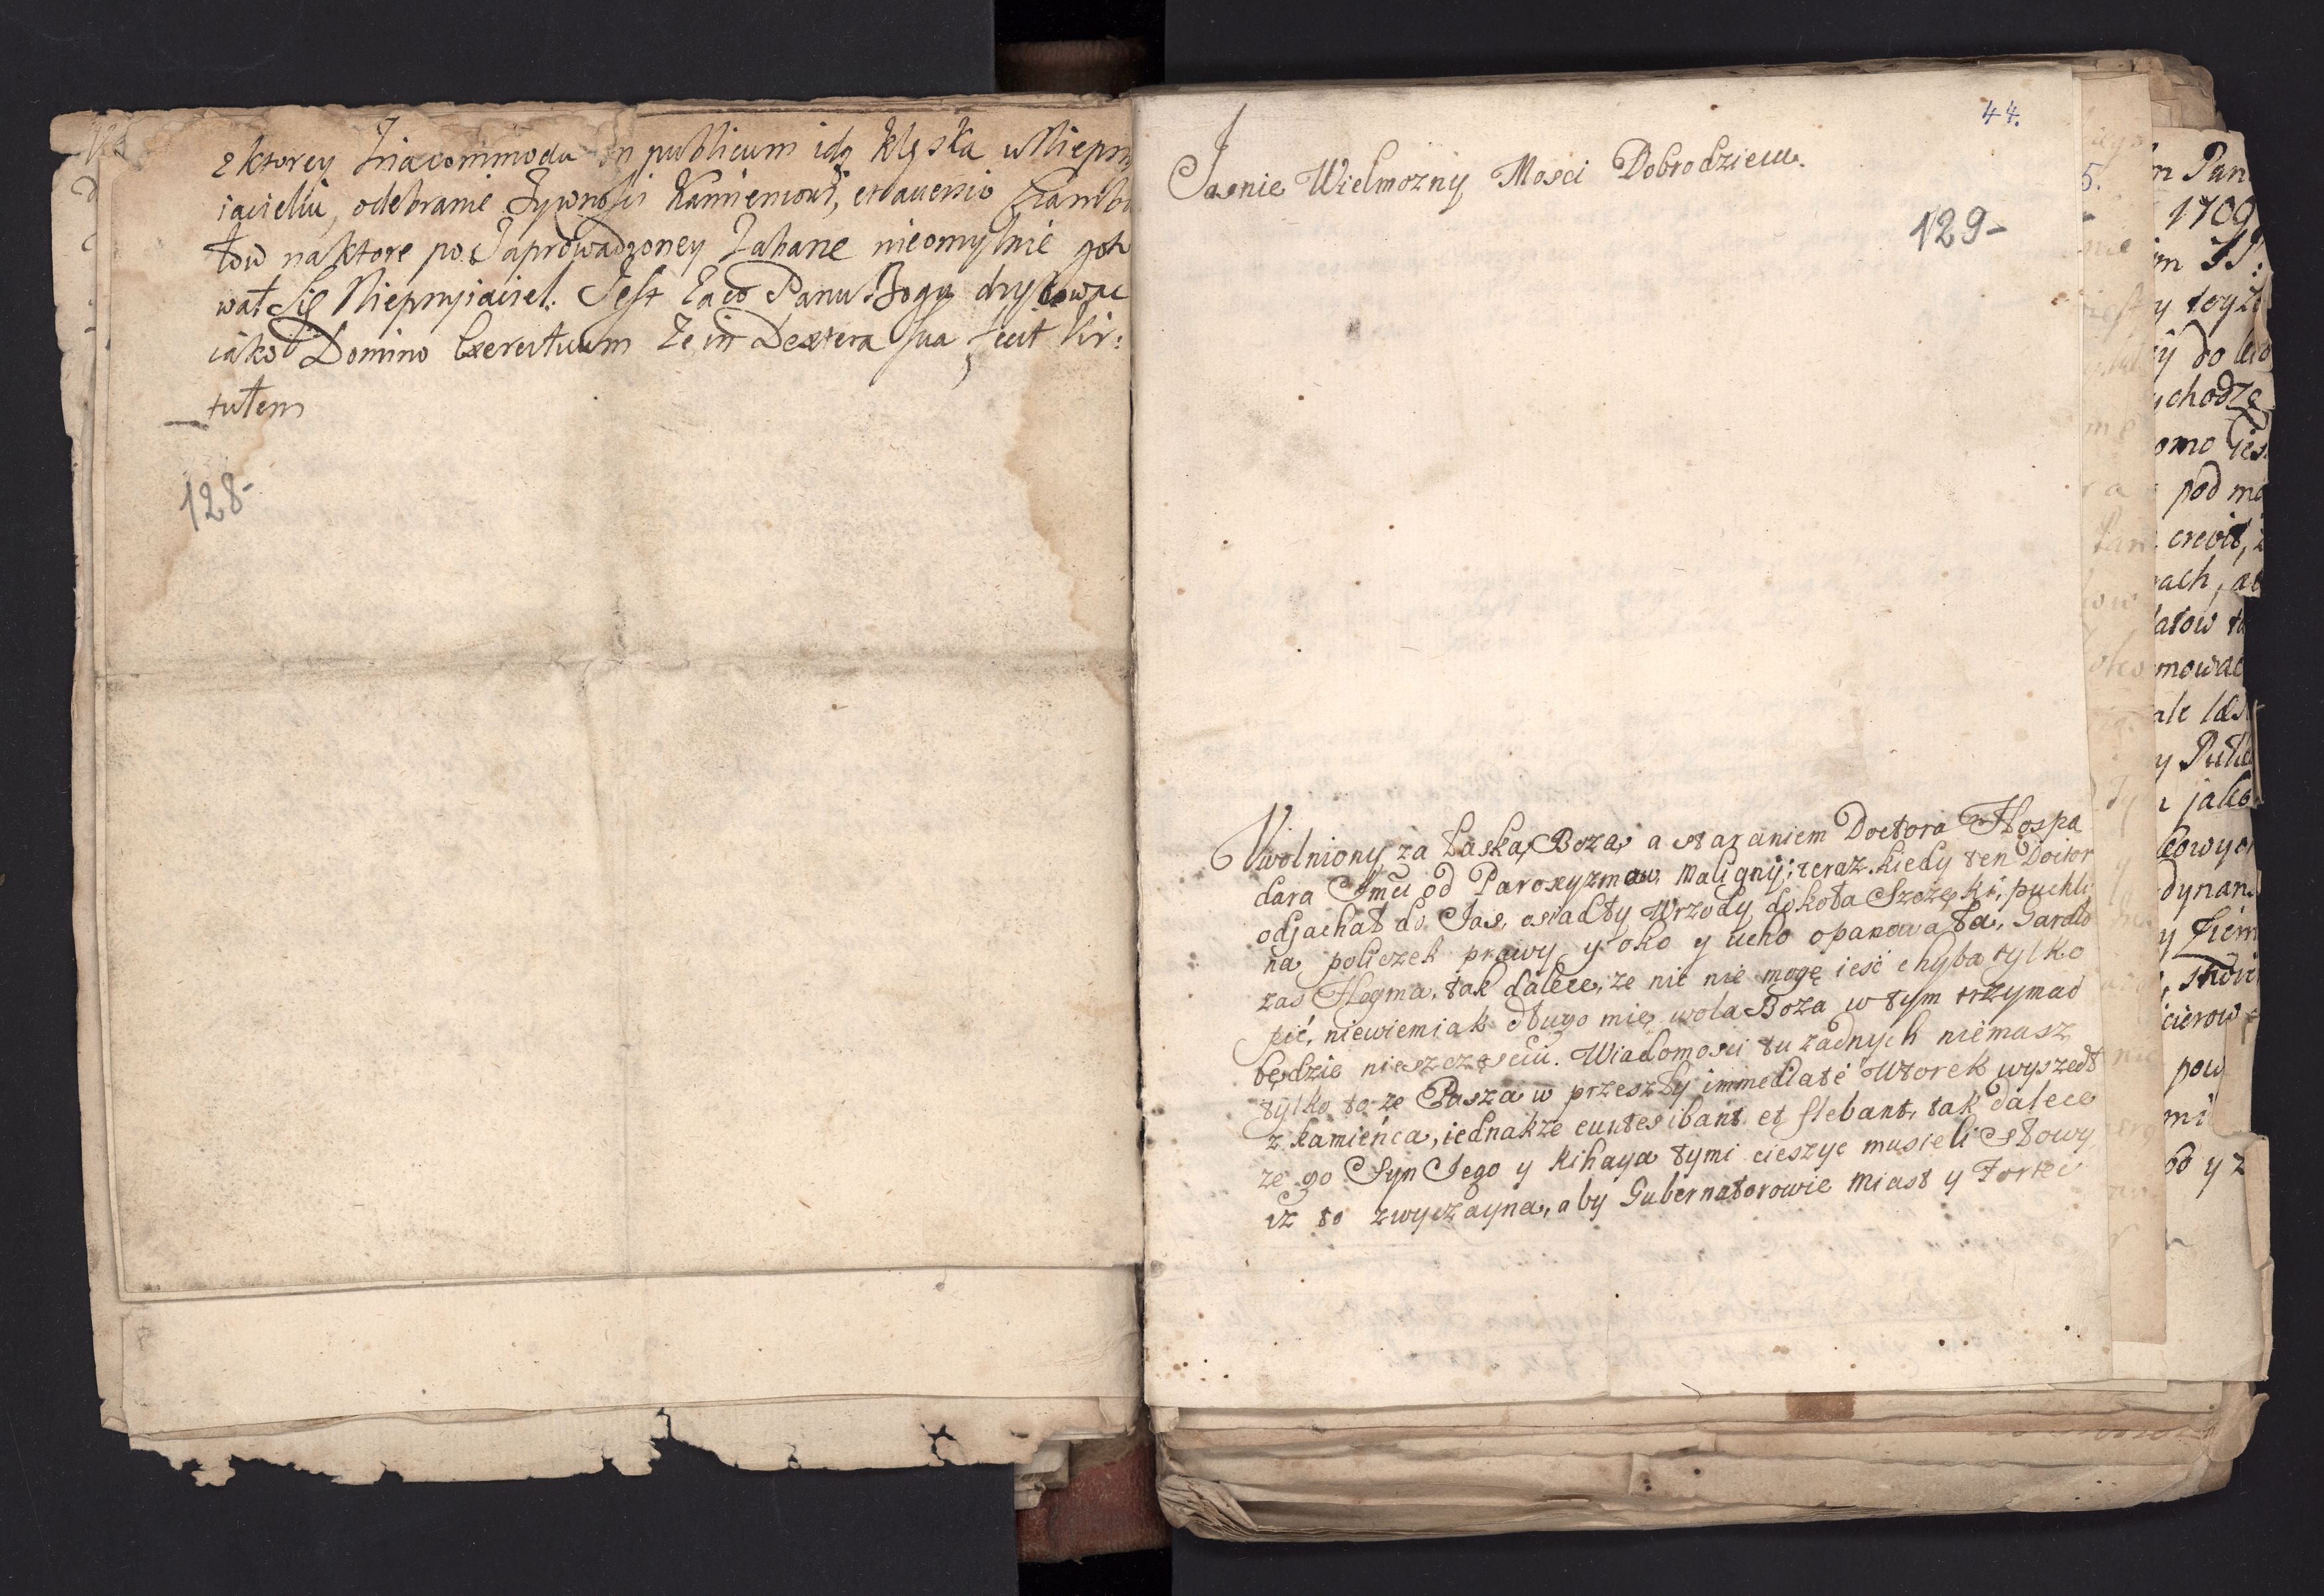 z ktorey Inacommoda in publicum idą klęska w Niepm
iacielu, odebranie Zywnosci
tow na ktore po Zaprowadzoney Zahane nieomylnie goto
wał Się Nieprzyiaciel. Jest Za co Panu Bogu dzyko wac
iako Domino Exercituum Ze in Dextera sua fecit Vir:
tutem
128-
44.
Jasnie Wielmozny Mosci Dobrodzieiu.
129-
Uwolniony za Łaską Bozą a staraniem Doctora Hospa
dara Jmci od Paroxyzmow Maligny; teraz kiedy ten Doctor
odjachał do Jas, osiadły Wrzody dokoła Szczęki, puchli
na policzek prawy y oko y ucho opanowała, Gardło
zas Flegma, tak dalece, ze nic nie mogę iesć chyba tylko
pić, niewiem iak długo mię wola Boza w tym trzymac
będzie nieszczęsciu. Wiadomosci tu zadnych niemasz
tylko to ze Pasza w przeszły immediaté Wtorek wyszedł
z kamieńca, iednakze euntes ibant et flebant, tak dalece
ze go Syn Jego y Kihaya tymi cieszyc musieli Słowy,
iz to zwyczayna, aby Gubernatorowie Miast y Fortec
m Pan
1709
y toyże
do
chodzą
omo ies
pod mo
crevit,
ach,
atow
mowac
y
jako
kowych
dynan
y Ziem
cierow
pow
mi
od y z